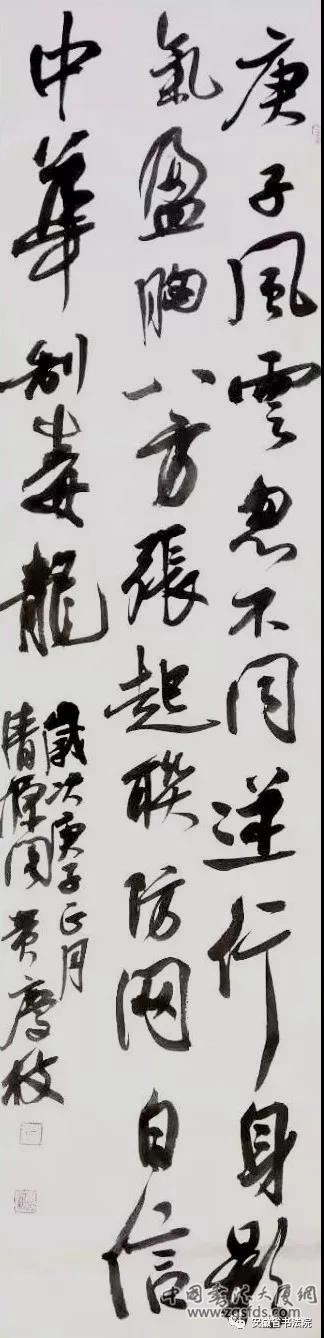 庚子風雲忽不同逆行身影
氣盈胸八方張起聯防网自信
中華制毒龍
歲次庚子正月
清源閣黄慶枝
中國書派大厦網
www.zgsfds.com
安徽省书法院